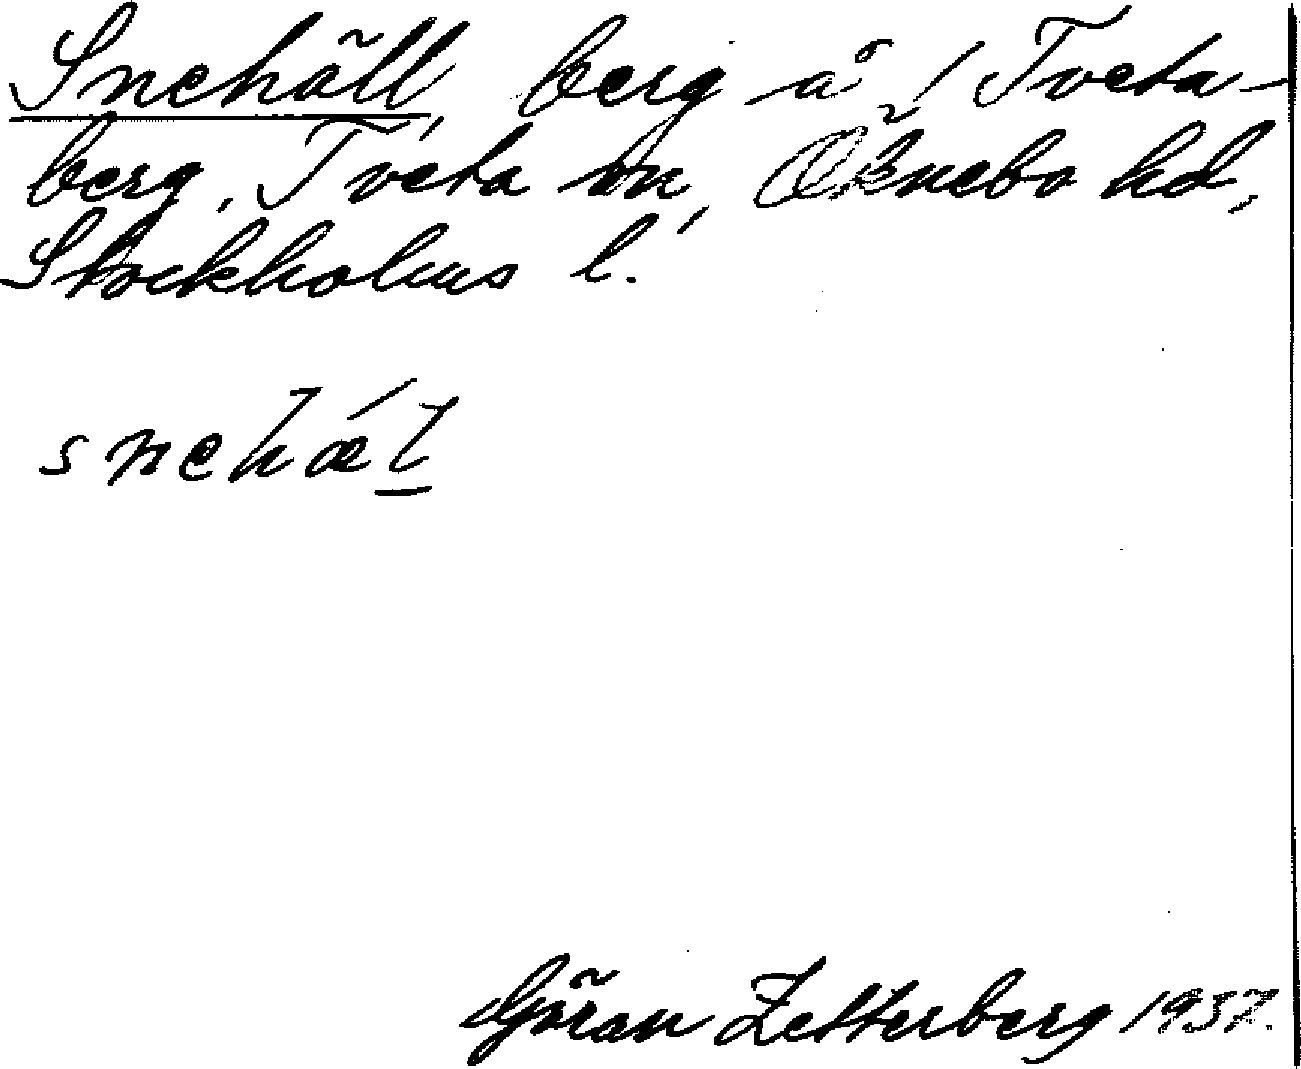 Snehäll, berg å / Tveta-
berg, Tveta sn, Öknebo hd,
Stockholms l.
snehǽl
Göran Zetterberg 1937.